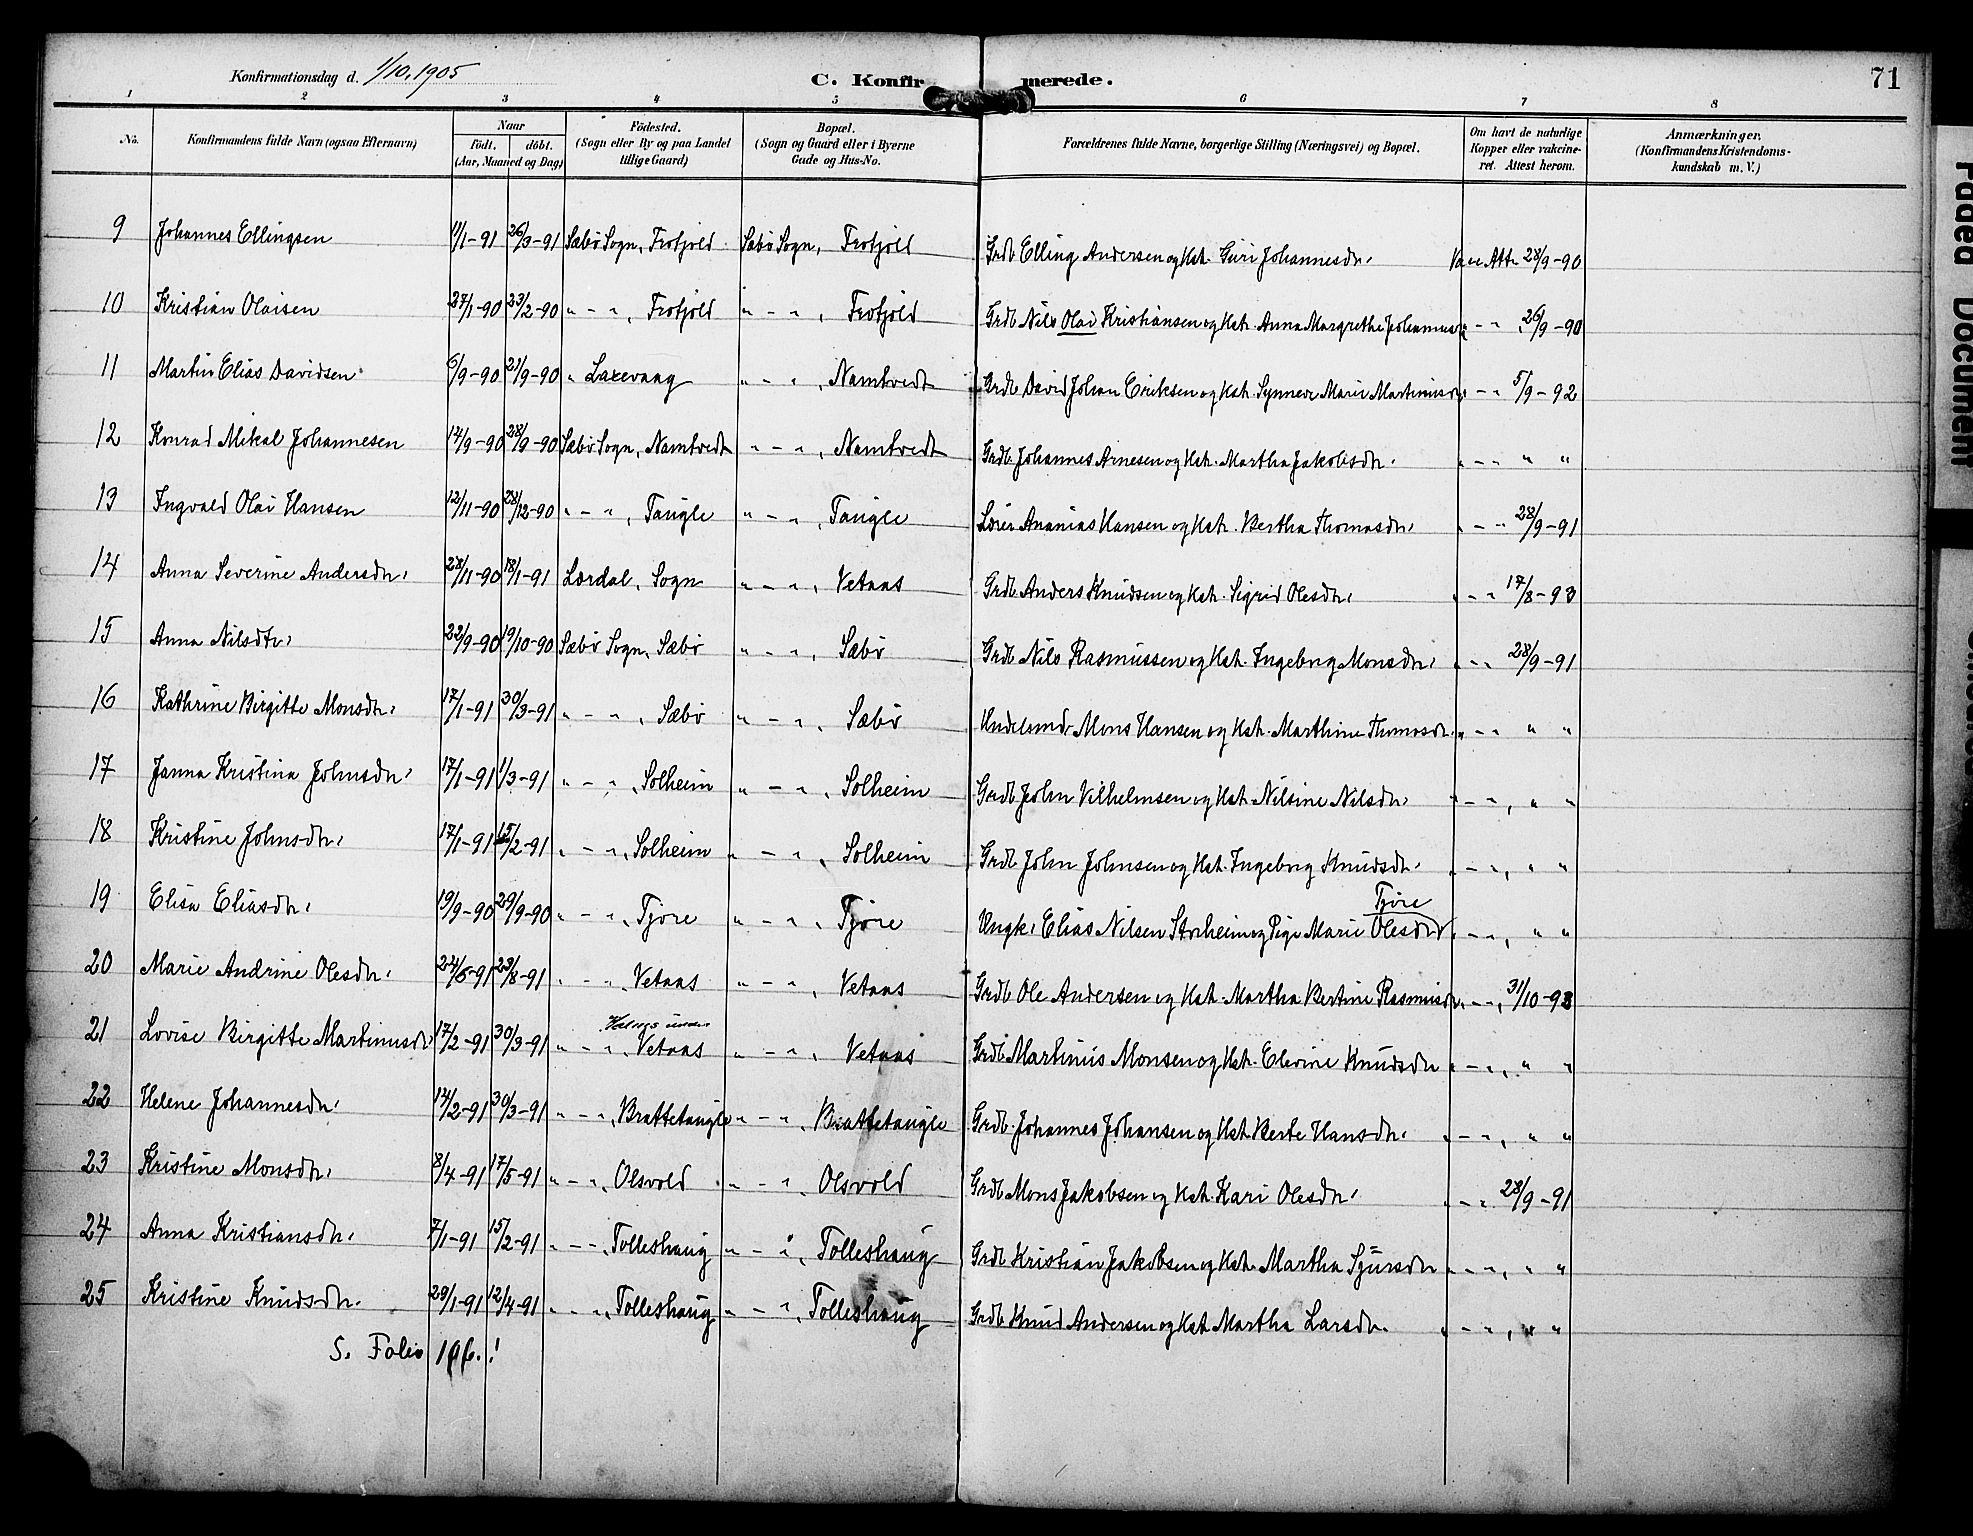 Konfirmationsdag d. 1/10. 1905 C. Konfirmerede. 71
1 2 3 4 5 6 7 8
No. Konfirmandens fulde Navn (ogsaa Efternavn) Naar Födt. döbt. (Aar, Maaned og Dag) Födested. (Sogn eller By og paa Landet tillige Gaard) Bopæl. (Sogn og Gaard eller i Byerne Gade og Hus-No.) Forældrenes fulde Navne, borgerlige Stilling (Næringsvei) og Bopæl. Om havt de naturlige Kopper eller vakcineret. Attest herom. Anmærkninger. (Konfirmandens Kristendomskundskab m. V.)
9 Johannes Ellingsen 11/1-91 26/3-91 Sæbö Sogn, Trofjeld Sæbö Sogn, Trofjeld Grdb. Elling Andersen og Kst. Guri Johannesdr. Vacc. Att. 28/9-90
10 Kristian Olaisen 27/1-90 23/2-90 " - " , Trofjeld " - " , Trofjeld Grdb. Nils Olai Kristiansen og Kst. Anna Margrethe Johannesdr. " - " 26/9-90
11 Martin Elias Davidsen 6/9-90 21/9-90 " Laxevaag " - " , Namtvedt Grdb. David Johan Eriksen og Kst. Synneve Marie Martinusdr. " - " 5/9-92
12 Konrad Mikal Johannesen 14/9-90 28/9-90 Sæbö Sogn, Namtvedt " - " , Namtvedt Grdb. Johannes Arnesen og Kst. Martha Jakobsdr. " - " " "
13 Ingvald Olai Hansen 12/11-90 28/12-90 " - " , Taugle " - " , Taugle Lærer Ananias Hansen og Kst. Bertha Thomasdr. " - " 28/9-91
14 Anna Severine Andersdr. 28/11-90 18/1-91 Lærdal, Sogn " - " , Vetaas Grdb. Anders Knudsen og Kst. Sigrid Olesdr. " - " 17/8-93
15 Anna Nilsdtr. 22/9-90 19/10-90 Sæbö Sogn, Sæbö " - " , Sæbö Grdb. Nils Rasmussen og Kst. Ingeborg Monsdr. " - " 28/9-91
16 Kathrine Birgitte Monsdr. 17/1-91 30/3-91 " - " , Sæbö " - " , Sæbö Handelsmd. Mons Hansen og Kst. Marthine Thomasdr. " - " " "
17 Janna Kristina Johnsdr. 17/1-91 1/3-91 " - " , Solheim " - " , Solheim Grdb. John Vilhelmsen og Kst. Nilsine Nilsdr. " - " , " "
18 Kristine Johnsdr. 17/1-91 15/2-91 " - " , Solheim " - " , Solheim Grdb. John Johnsen og Kst. Ingeborg Knudsdr. " - " , " "
19 Elisa Eliasdr. 19/9-90 29/9-90 " - " , Tjöre " - " , Tjöre Ungk. Elias Nilsen Storheim og Pige Marie Olesdr. Tjöre " - " , " "
20 Marie Andrine Olesdr. 24/5-91 23/8-91 " - " , Vetaas " - " , Vetaas Grdb. Ole Andersen og Kst. Martha Bertine Rasmusdr. " - " , 31/10-93
21 Lovise Birgitte Martinusdr. 17/2-91 30/3-91 " - " , under Vetaas " - " , Vetaas Grdb. Martinus Monsen og Kst. Elevine Knudsdr " - " , " "
22 Helene Johannesdr. 14/2-91 30/3-91 " - " , Brattetaugle " - " , Brattetaugle Grdb. Johannes Johansen og Kst. Berte Hansdr. " - " , " "
23 Kristine Monsdr. 8/4-91 17/5-91 " - " , Olsvold " - " , Olsvold Grdb. Mons Jakobsen og Kst. Kari Olesdr. " - " 28/9-91
24 Anna Kristiansdr. 7/1-91 15/2-91 " - " , Tolleshaug " - " , Tolleshaug Grdb. Kristian Jakobsen og Kst. Martha Sjursdr " - " , " "
25 Kristine Knudsdr. 29/1-91 12/4-91 " - " , Tolleshaug " - " , Tolleshaug Grdb. Knud Andersen og Kst. Martha Larsdr. " - " , " "
S. Folio 106.!
Faded Document